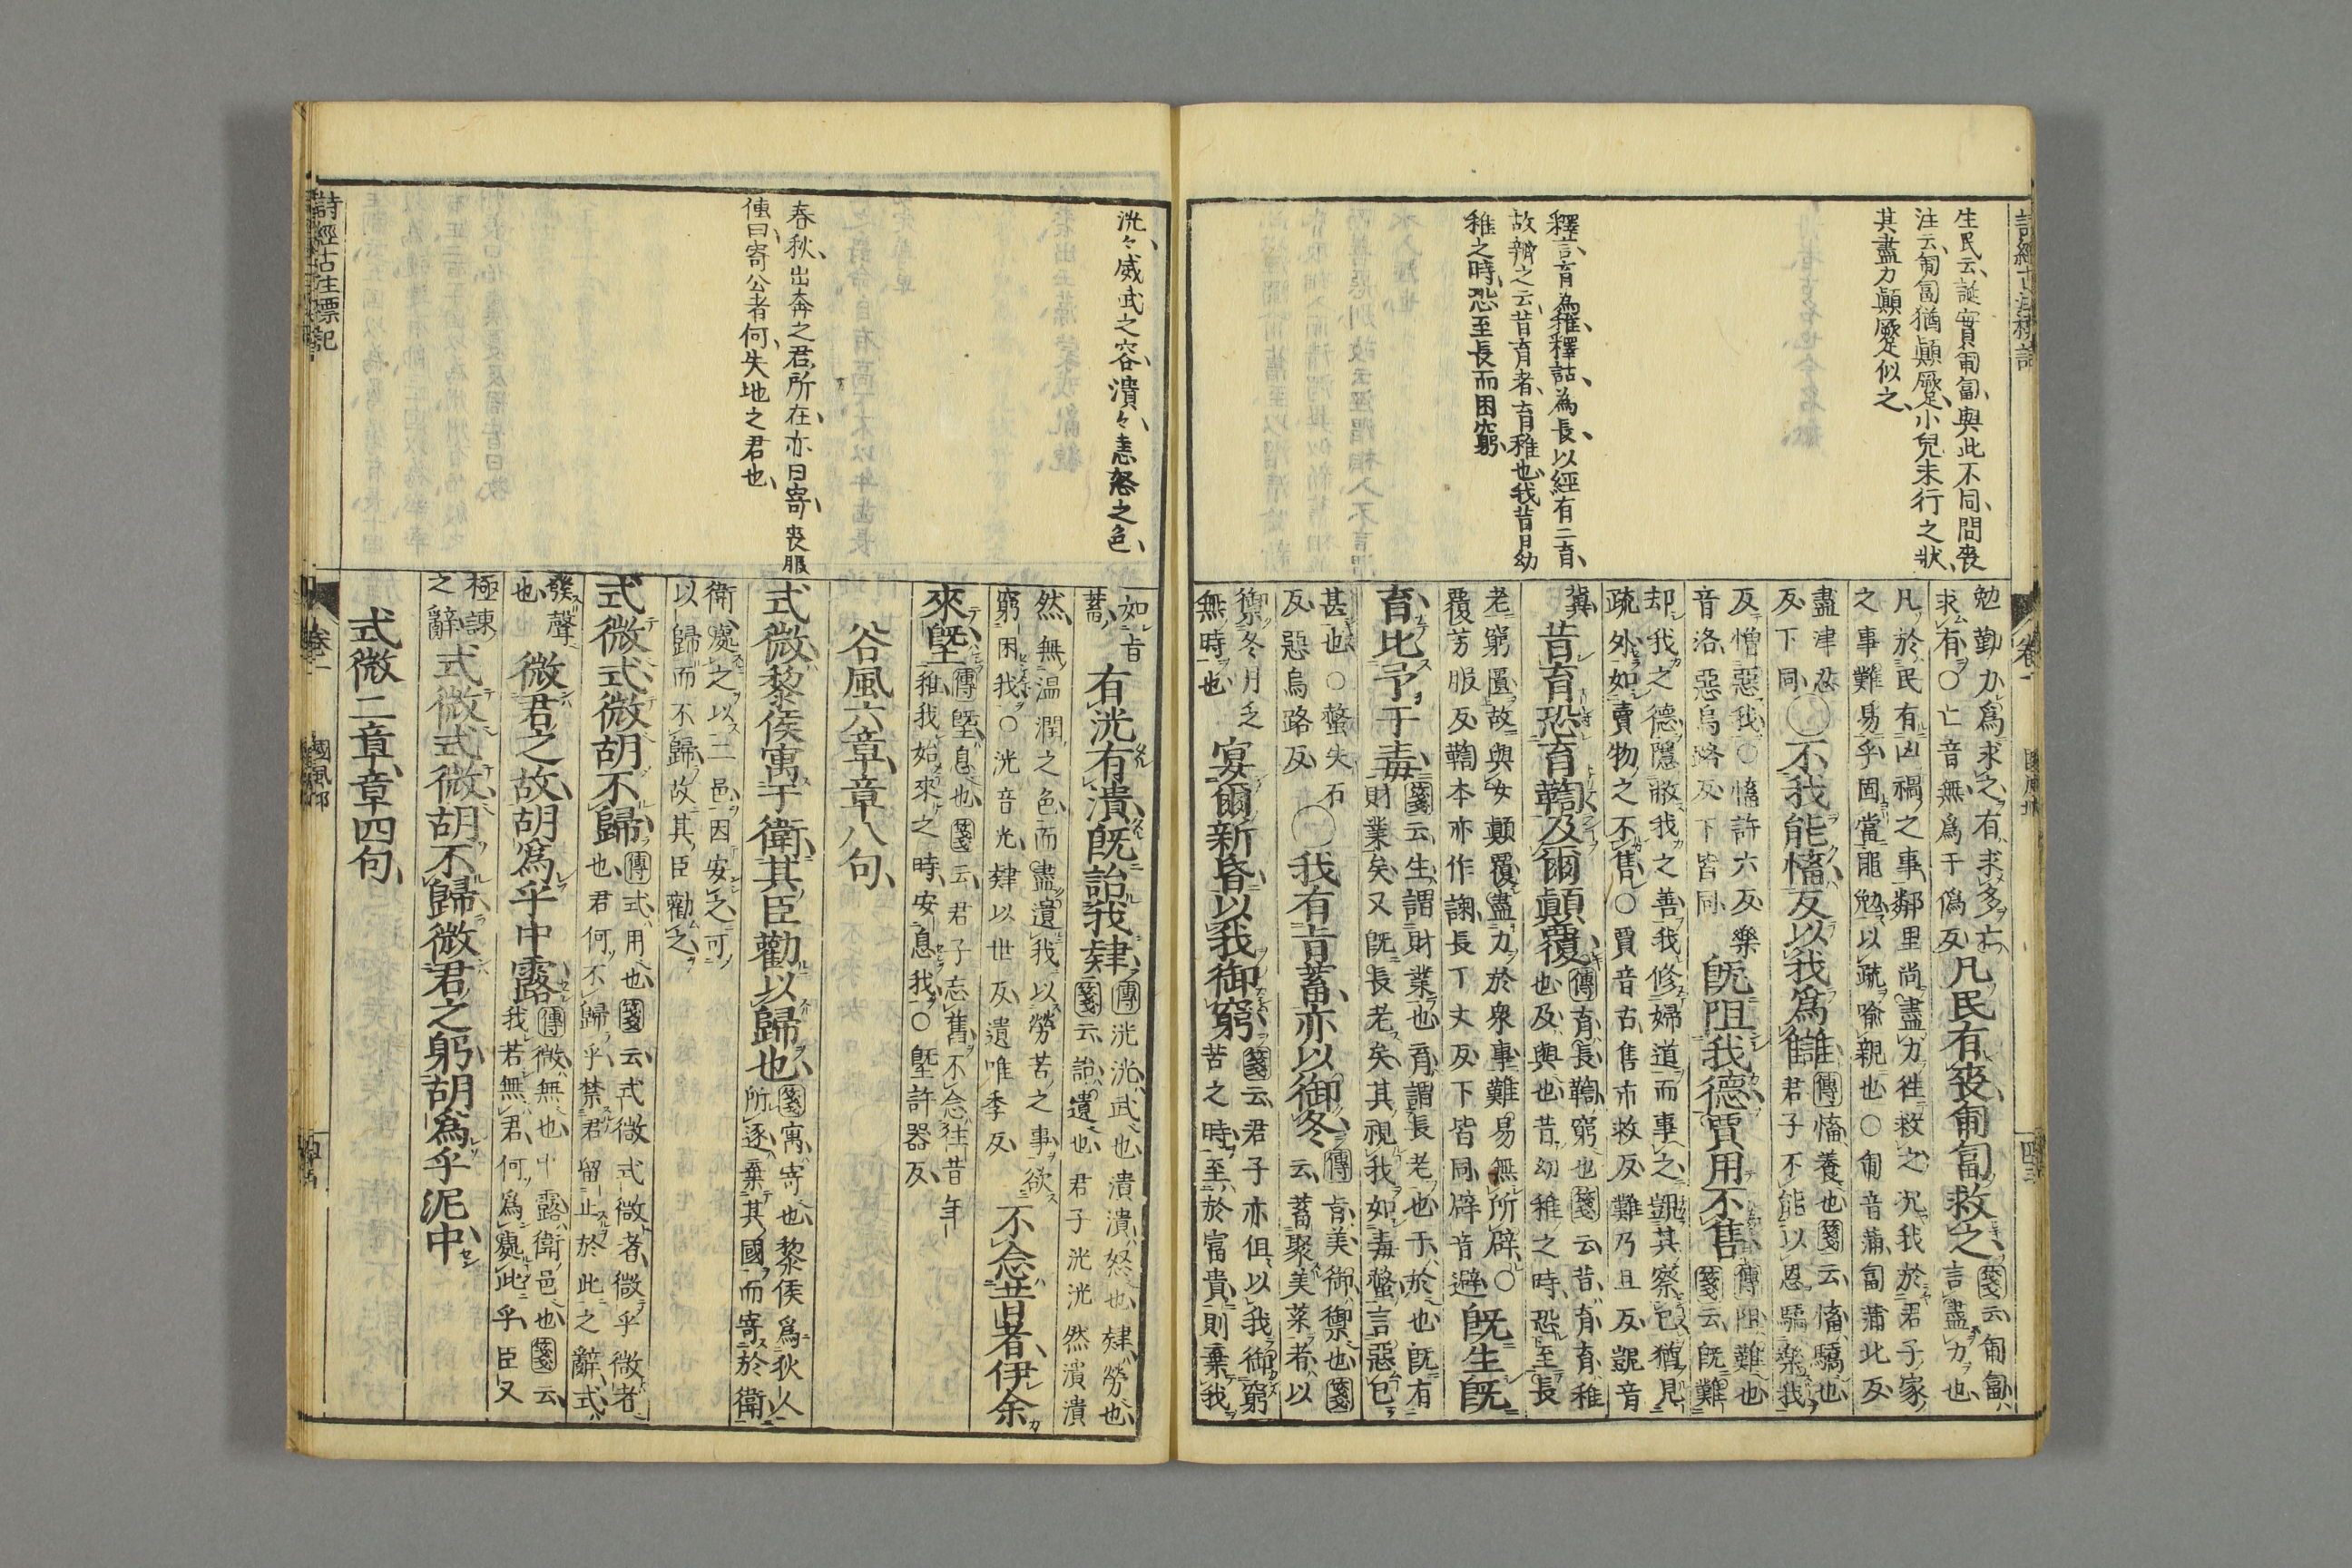 生民云、誕實匍匐、與此不同、問喪
注云、匍匐猶顚蹙、小兒未行之狀、
其盡力顚蹙似之、
釋言、育為稚、釋詁為長、以經有二育、
故辨之云、昔育者、育稚也、我昔日幼
稚之時、恐至長而困窮、
勉勤力爲求之、有求多亡
求有○亡音無爲于僞反
凡民有喪匍匐救之
箋云匍匐
言盡力也
凡於民有凶禍之事鄰里尚盡力往救之況我於君子家
之事難易乎固當黽勉以疏喻親也○匍音蒲匐蒲北反
盡津忍
反下同
○不我能慉反以我爲讎
傳慉養也箋云慉驕也
君子不能以恩驕樂我
反憎惡我○慉許六反樂
音洛惡烏路反下皆同
既阻我德賈用不售
傳阻難也
箋云既難
却我之德隱蔽我之善我修婦道而事之覬其察己猶見
疏外如賣物之不售○賈音古售市救反難乃旦反覬音
冀
昔育恐育鞫及爾顚覆
傳育長鞫窮也箋云昔育育稚
也及與也昔幼稚之時恐至長
老窮匱故與女顚覆盡力於衆事難易無所辟○
覆芳服反鞫本亦作諊長丁丈反下皆同辟音避
既生既
育比予于毒
箋云生謂財業也育謂長老也于於也既有
財業矣又既長老矣其視我如毒螫言惡已
甚也○螫失石
反惡烏路反
○我有旨蓄亦以御冬
傳旨美御禦也箋
云蓄聚美菜者以
禦冬月乏
無時也
宴爾新昏以我御窮
箋云君子亦但以我御窮
苦之時至於富貴則棄我
洸々威武之容、潰々恚怒之色、
春秋、出奔之君、所在亦曰寄、喪服
傳曰、寄公者何、失地之君也、
如旨
蓄
有洸有潰既詒我肄
傳洸洸武也潰潰怒也肄勞也
箋云詒遺也君子洸洸然潰潰
然無温潤之色而盡遺我以勞苦之事欲
窮困我○洸音光肄以世反遺唯季反
不念昔者伊余
來塈
傳塈息也箋云君子忘舊不念往昔年
稚我始來之時安息我○塈許器反
谷風六章章八句
式微黎侯寓于衛其臣勸以歸也
箋寓寄也黎侯爲狄人
所逐棄其國而寄於衛
衛處之以二邑因安之可
以歸而不歸故其臣勸之
式微式微胡不歸
傳式用也箋云式微式微者微乎微者
也君何不歸乎禁君留止於此之辭式
發聲
也
微君之故胡爲乎中露
傳微無也中露衛邑也箋云
我若無君何爲處此乎臣又
極諫
之辭
式微式微胡不歸微君之躬胡爲乎泥中
式微二章章四句
詩經古注標記
卷一
國風邶